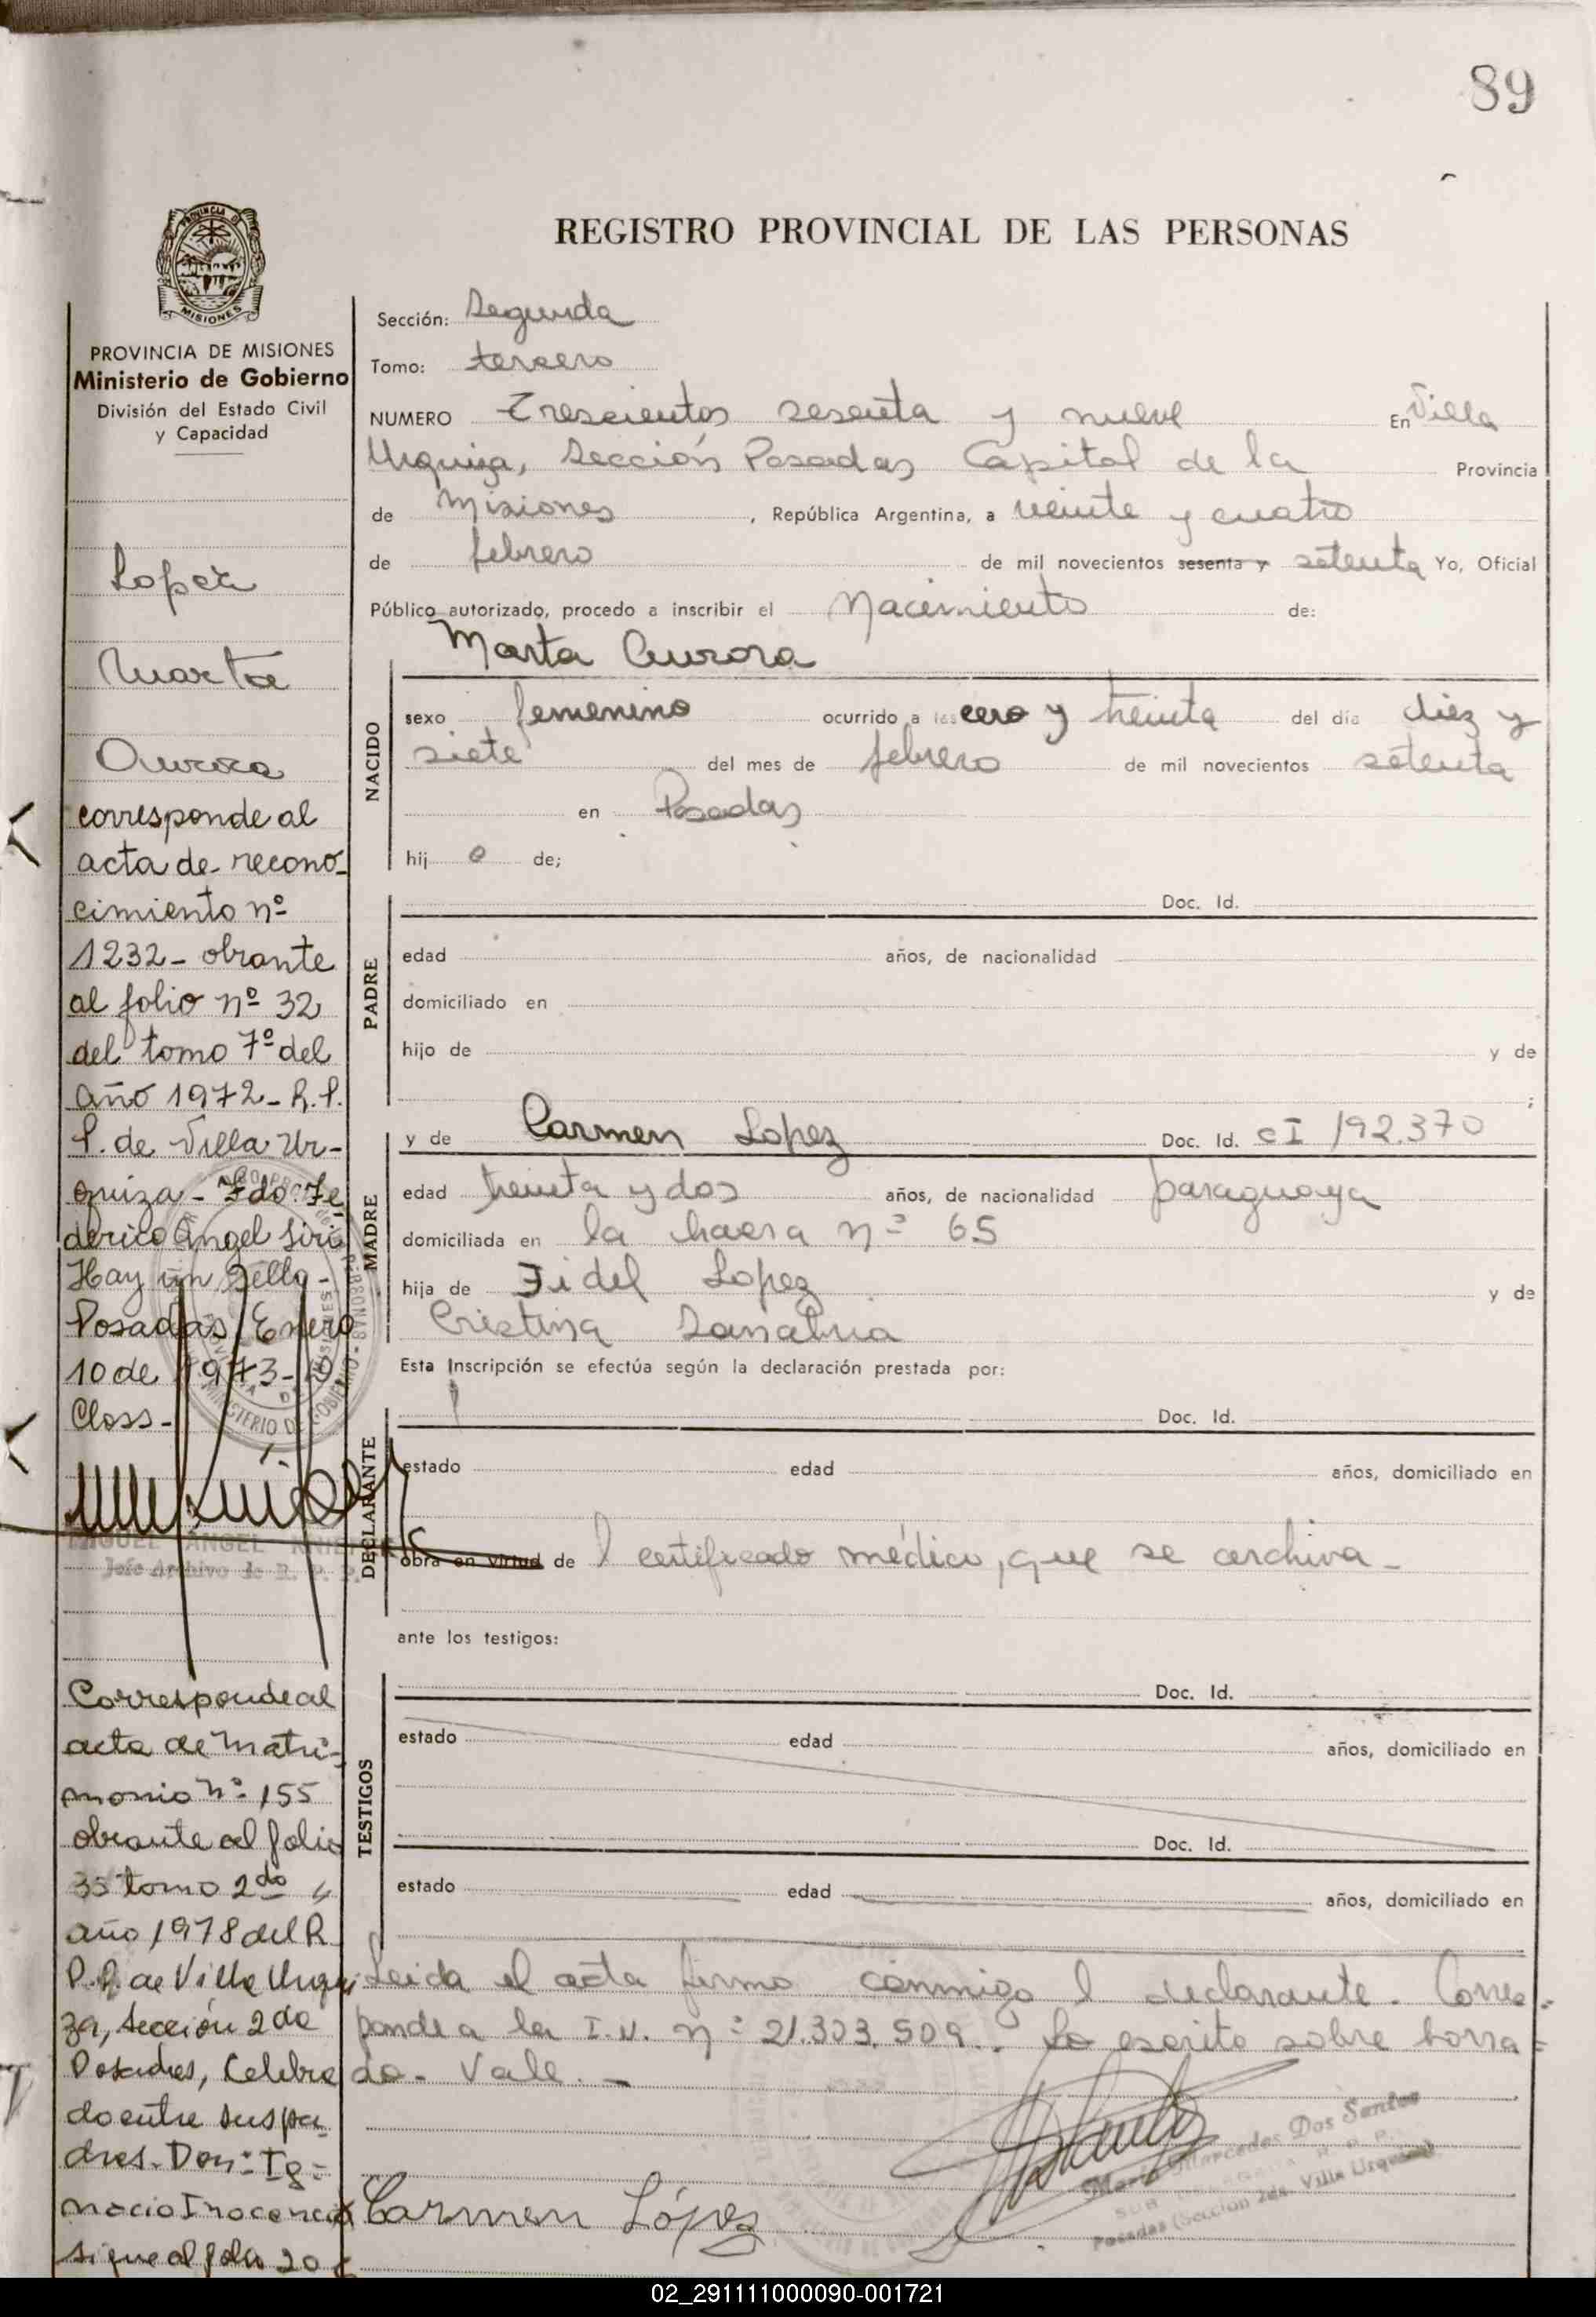 89
PROVINCIA DE
MISIONES
REGISTRO PROVINCIAL DE LAS PERSONAS
PROVINCIA DE MISIONES
Ministerio de Gobierno
División del Estado Civil
y Capacidad
Lopez
Marta
Aurora
corresponde al
acta de recono-
cimiento nº
1232 - obrante
al folio nº 32
del tomo 7º del
año 1972 - R.P.
P. de Villa Ur-
quiza - Fdo: Fe
derico Angel
Hay un Sello -
Posadas, Enero
10 de 1973 -
Closs -
MIGUEL ANGEL
Jefe Archivo de R. P. P.
Corresponde al
acta de Matri-
monio Nº 155
obrante al folio
35 tomo 2do
año 1978 del R
P.P. de Villa Urqui
za, Sección 2da
Posadas, Celebra
do entre sus pa-
dres. Don: Ig-
nacio Inocencio
sigue al folio 20
Sección: Segunda
Tomo: tercero
NUMERO Trescientos sesenta y nueve En Villa
Urquiza, Sección Posadas Capital de la Provincia
de Misiones, República Argentina, a veinte y cuatro
de febrero de mil novecientos sesenta y setenta Yo, Oficial
Público autorizado, procedo a inscribir el Nacimiento de:
Marta Aurora
NACIDO
sexo femenino ocurrido a las cero y treinta del día diez y
siete del mes de febrero de mil novecientos setenta
en Posadas
hij a de;
PADRE
Doc. Id.
edad años, de nacionalidad
domiciliado en
hijo de y de
;
MADRE
y de Carmen Lopez Doc. Id. CI 192.370
edad treinta y dos años, de nacionalidad paraguaya
domiciliada en la chacra nº 65
hija de Fidel Lopez y de
Cristina Sanabria
Esta Inscripción se efectúa según la declaración prestada por:
DECLARANTE
Doc. Id.
estado edad años, domiciliado en
obra en virtud de l certificado médico, que se archiva -
ante los testigos:
TESTIGOS
Doc. Id.
estado edad años, domiciliado en
Doc. Id.
estado edad años, domiciliado en
Leida el acta firma conmigo l declarante. Corres-
ponde a la I.N. nº 21.303.509. Lo escrito sobre borra-
do - Vale. -
Carmen López
Maria Mercedes Dos Santos
Posadas (Sección 2da. Villa Urquiza)
02_291111000090-001721